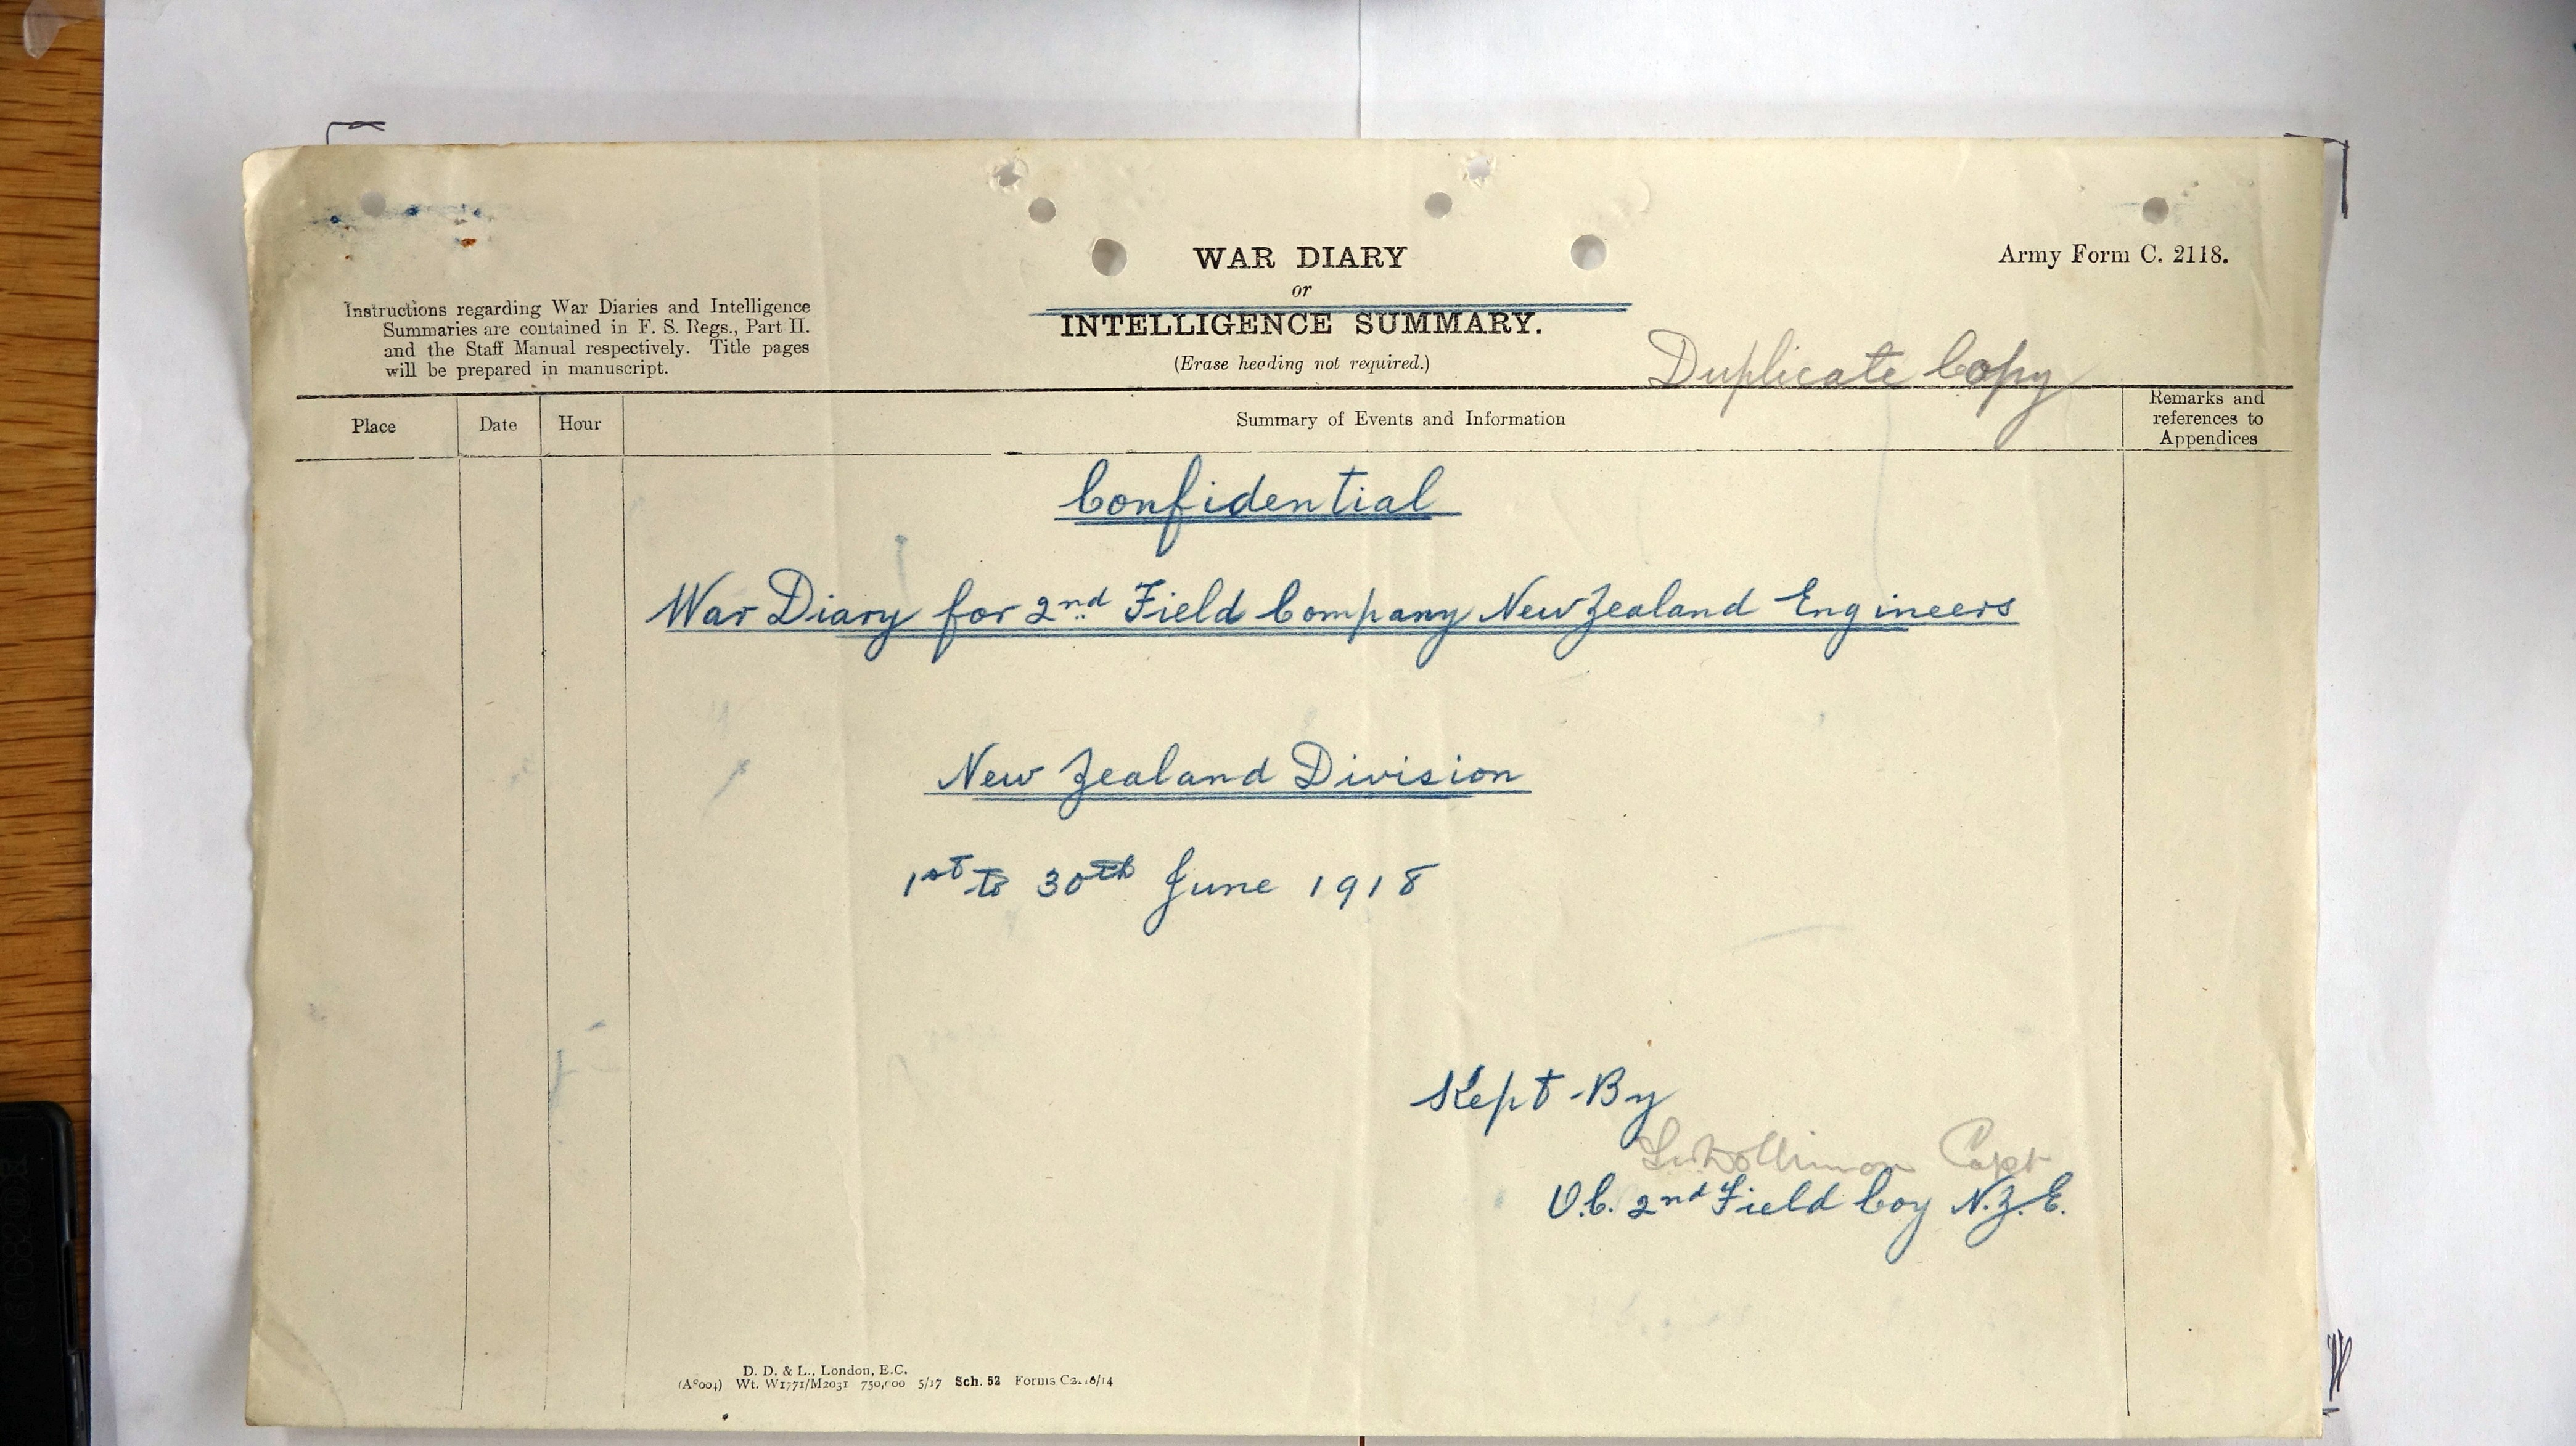 WAR DIARY
or
INTELLIGENCE SUMMARY.
(Erase heading not required.)
Army Form C. 2118.
Instructions regarding War Diaries and Intelligence
Summaries are contained in F. S. Regs., Part II.
and the Staff Manual respectively. Title pages
will be prepared in manuscript.
Duplicate Copy
Place Date Hour Summary of Events and Information Remarks and
references to
Appendices
Confidential
War Diary for 2nd Field Company New Zealand Engineers
New Zealand Division
1st to 30th June 1918
Kept By
Capt
O.C. 2nd Field Coy N.Z.E.
D. D. & L., London, E.C.
Wt. W1771/M2031 750,000 5/17 Sch. 52 Forms